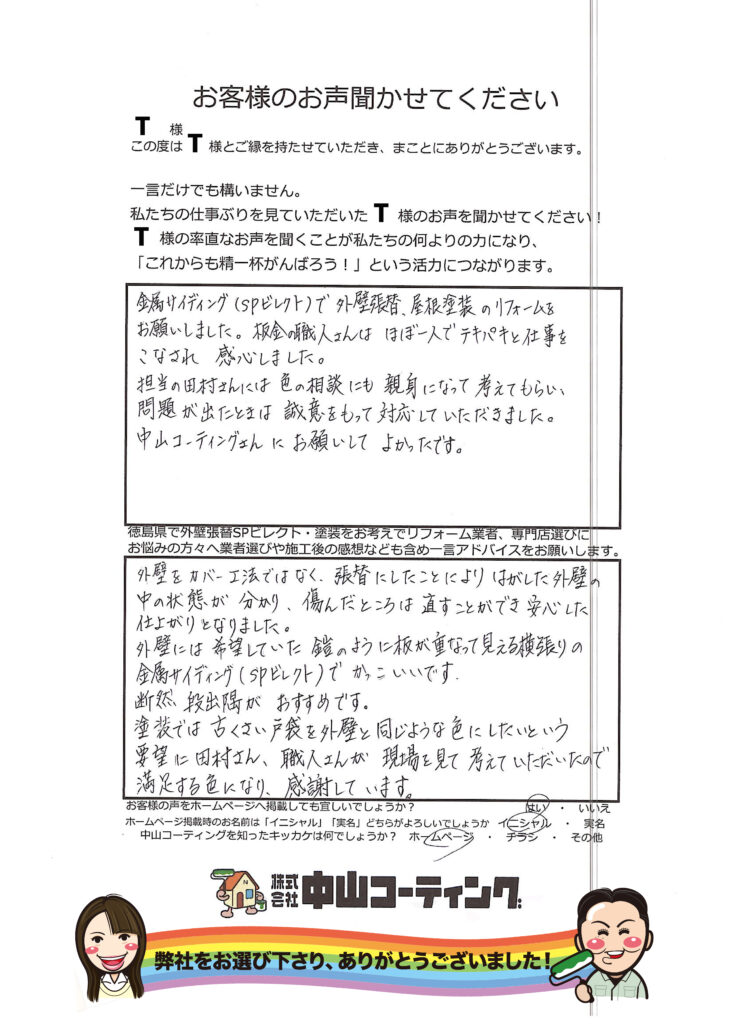 お客様のお声聞かせてください
T 様
この度は T 様とご縁を持たせていただき、まことにありがとうございます。
一言だけでも構いません。
私たちの仕事ぶりを見ていただいた T 様のお声を聞かせてください！
T 様の率直なお声を聞くことが私たちの何よりの力になり、
「これからも精一杯がんばろう！」という活力につながります。
金属サイディング(SPビレクト)で 外壁張替、屋根塗装 のリフォームを
お願いしました。板金の職人さんは ほぼ一人で テキパキと仕事を
こなされ 感心しました。
担当の田村さんには 色の相談にも 親身になって 考えてもらい、
問題が出たときは 誠意をもって対応していただきました。
中山コーティングさん に お願いして よかったです。
徳島県で外壁張替SPビレクト・塗装をお考えでリフォーム業者、専門店選びに
お悩みの方々へ業者選びや施工後の感想なども含め一言アドバイスをお願いします。
外壁をカバー工法ではなく、張替にしたことにより はがした外壁の
中の状態が 分かり、傷んだところは 直すことができ 安心した
仕上がりとなりました。
外壁には 希望していた 鎧のように板が重なって見える横張りの
金属サイディング(SPビレクト)で かっこいいです.
断然、段出隅が おすすめです。
塗装では 古くさい戸袋を外壁と同じような色にしたいという
要望に田村さん、職人さんが 現場を見て 考えていただいたので
満足する色になり、感謝しています。
お客様の声をホームページへ掲載しても宜しいでしょうか？ はい ・ いいえ
ホームページ掲載時のお名前は「イニシャル」「実名」どちらがよろしいでしょうか イニシャル ・ 実名
中山コーティングを知ったキッカケは何でしょうか？ ホームページ ・ チラシ ・ その他
株式会社 中山コーティング
弊社をお選び下さり、ありがとうございました！